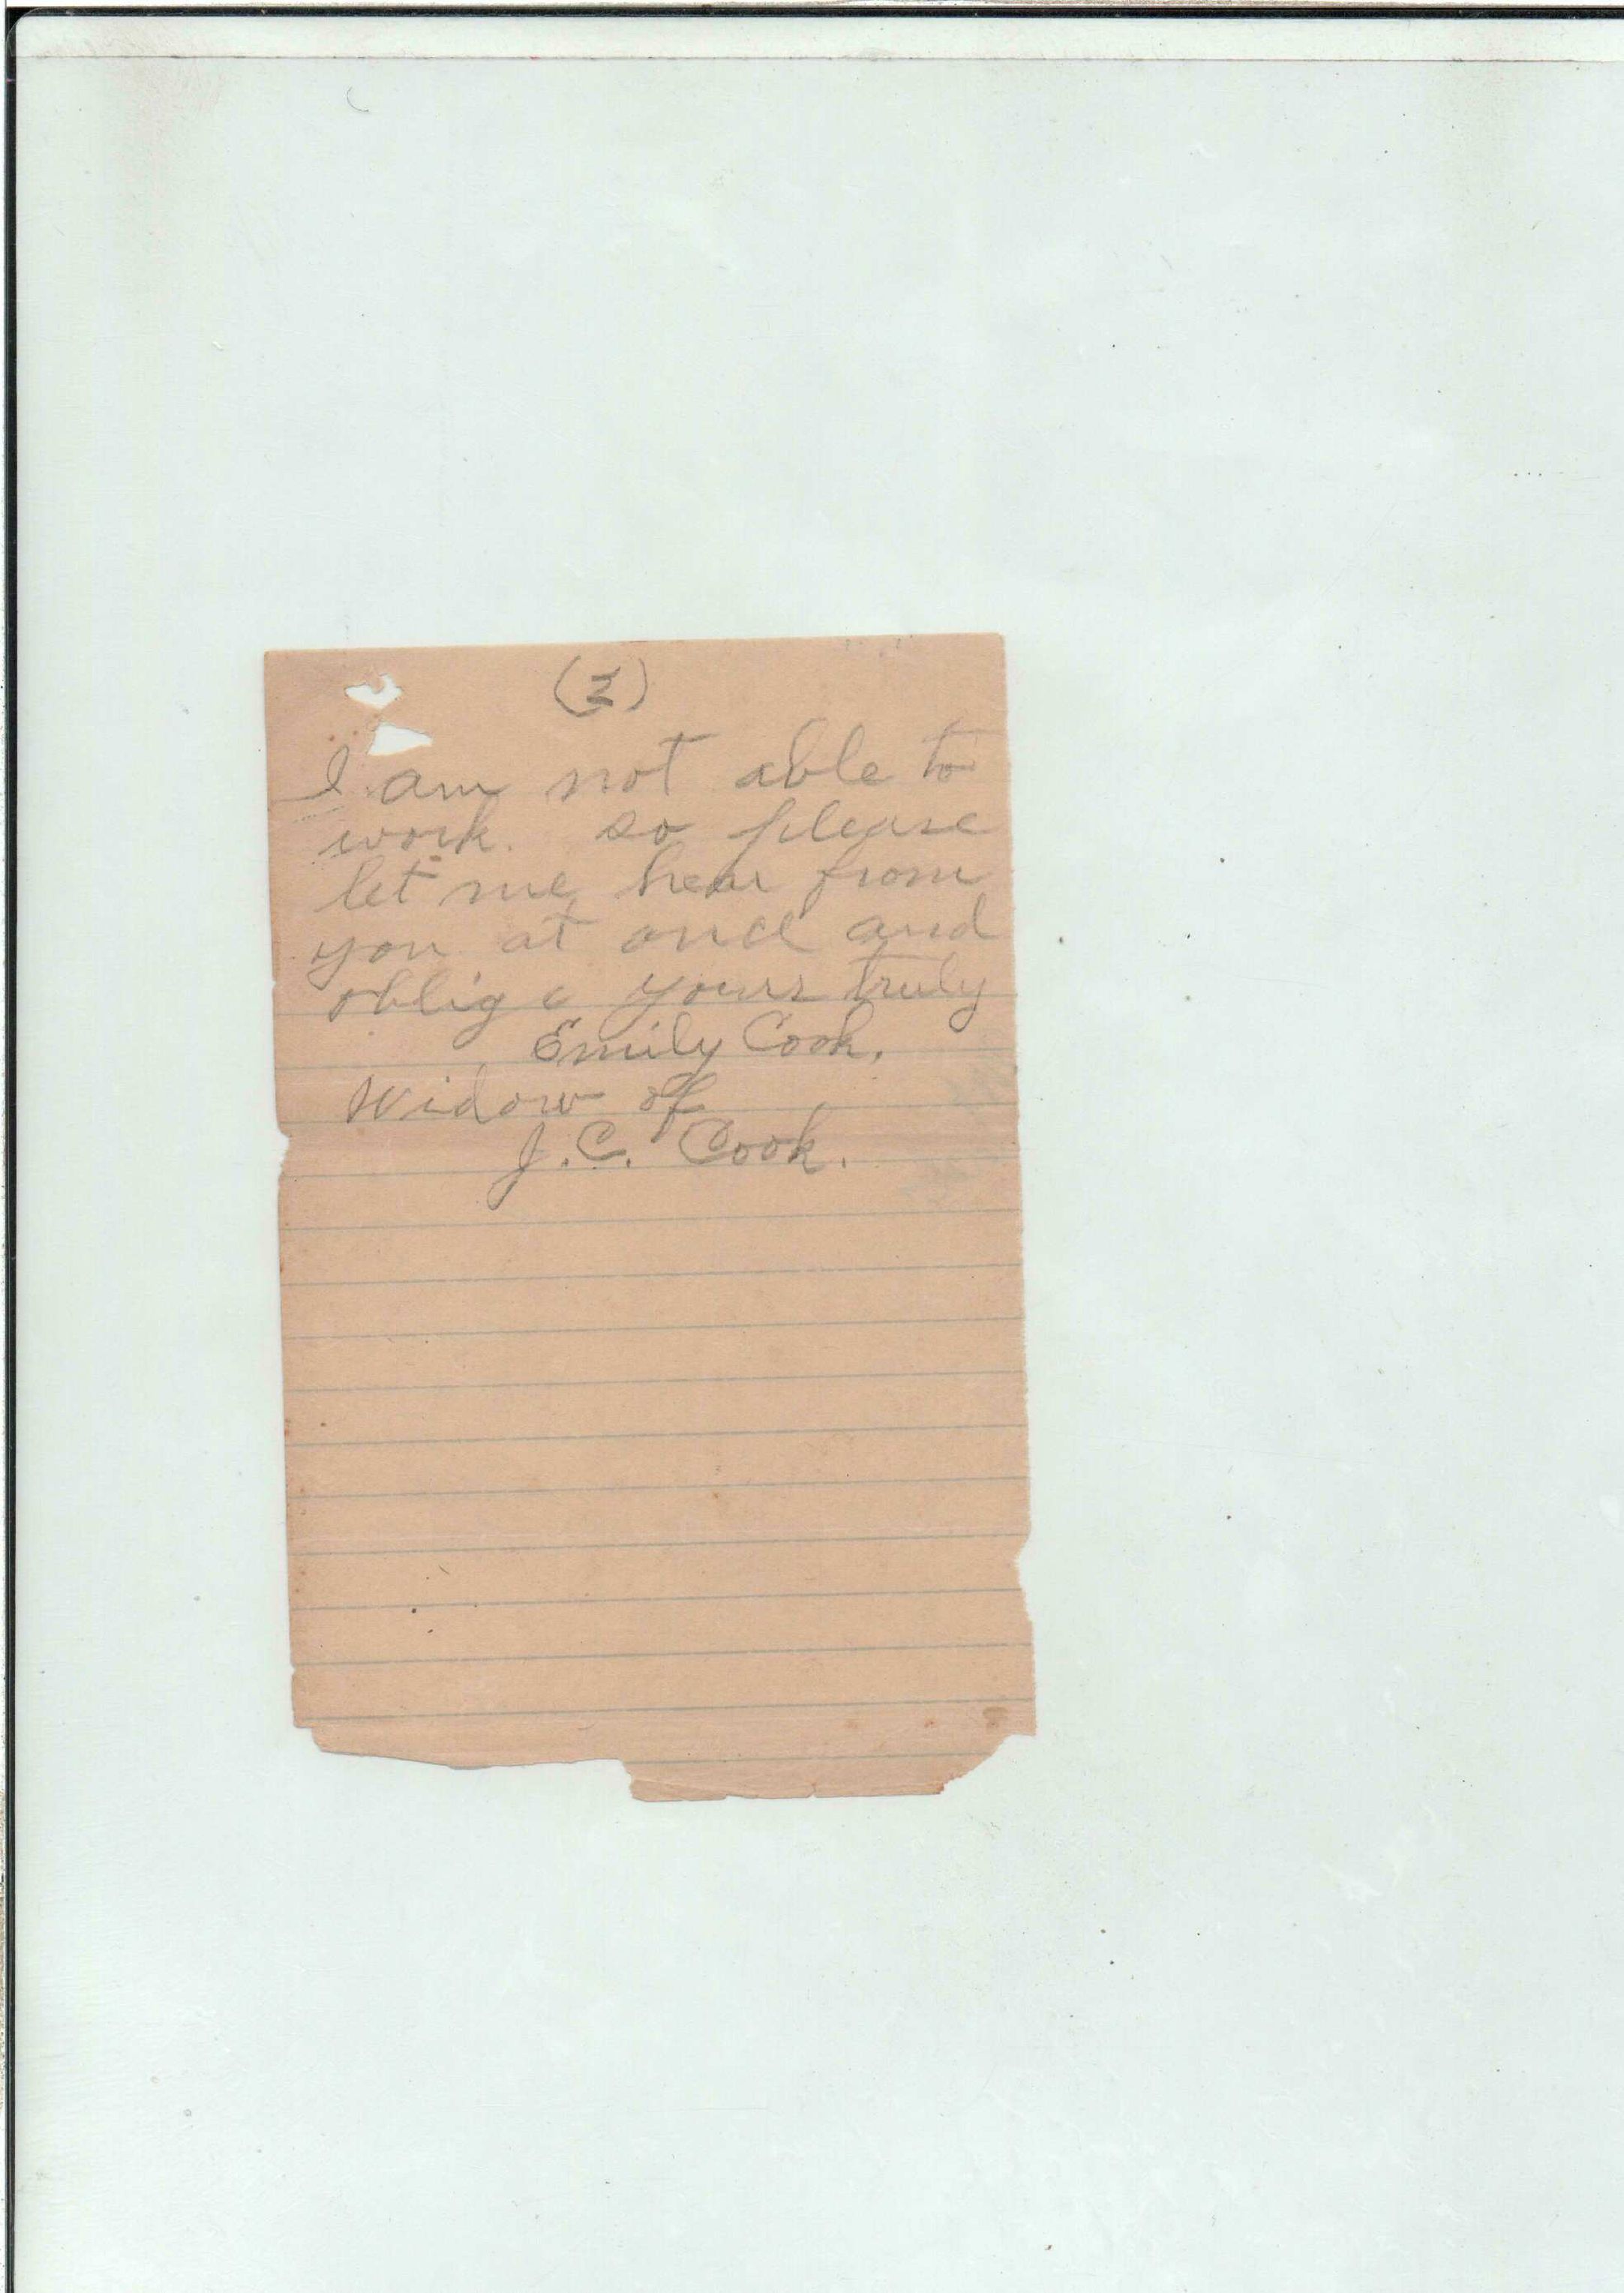 (2)
I am not able to
work. so please
let me hear from
you at once and
oblige yours truly
Emily Cook.
Widow of
J.C. Cook.